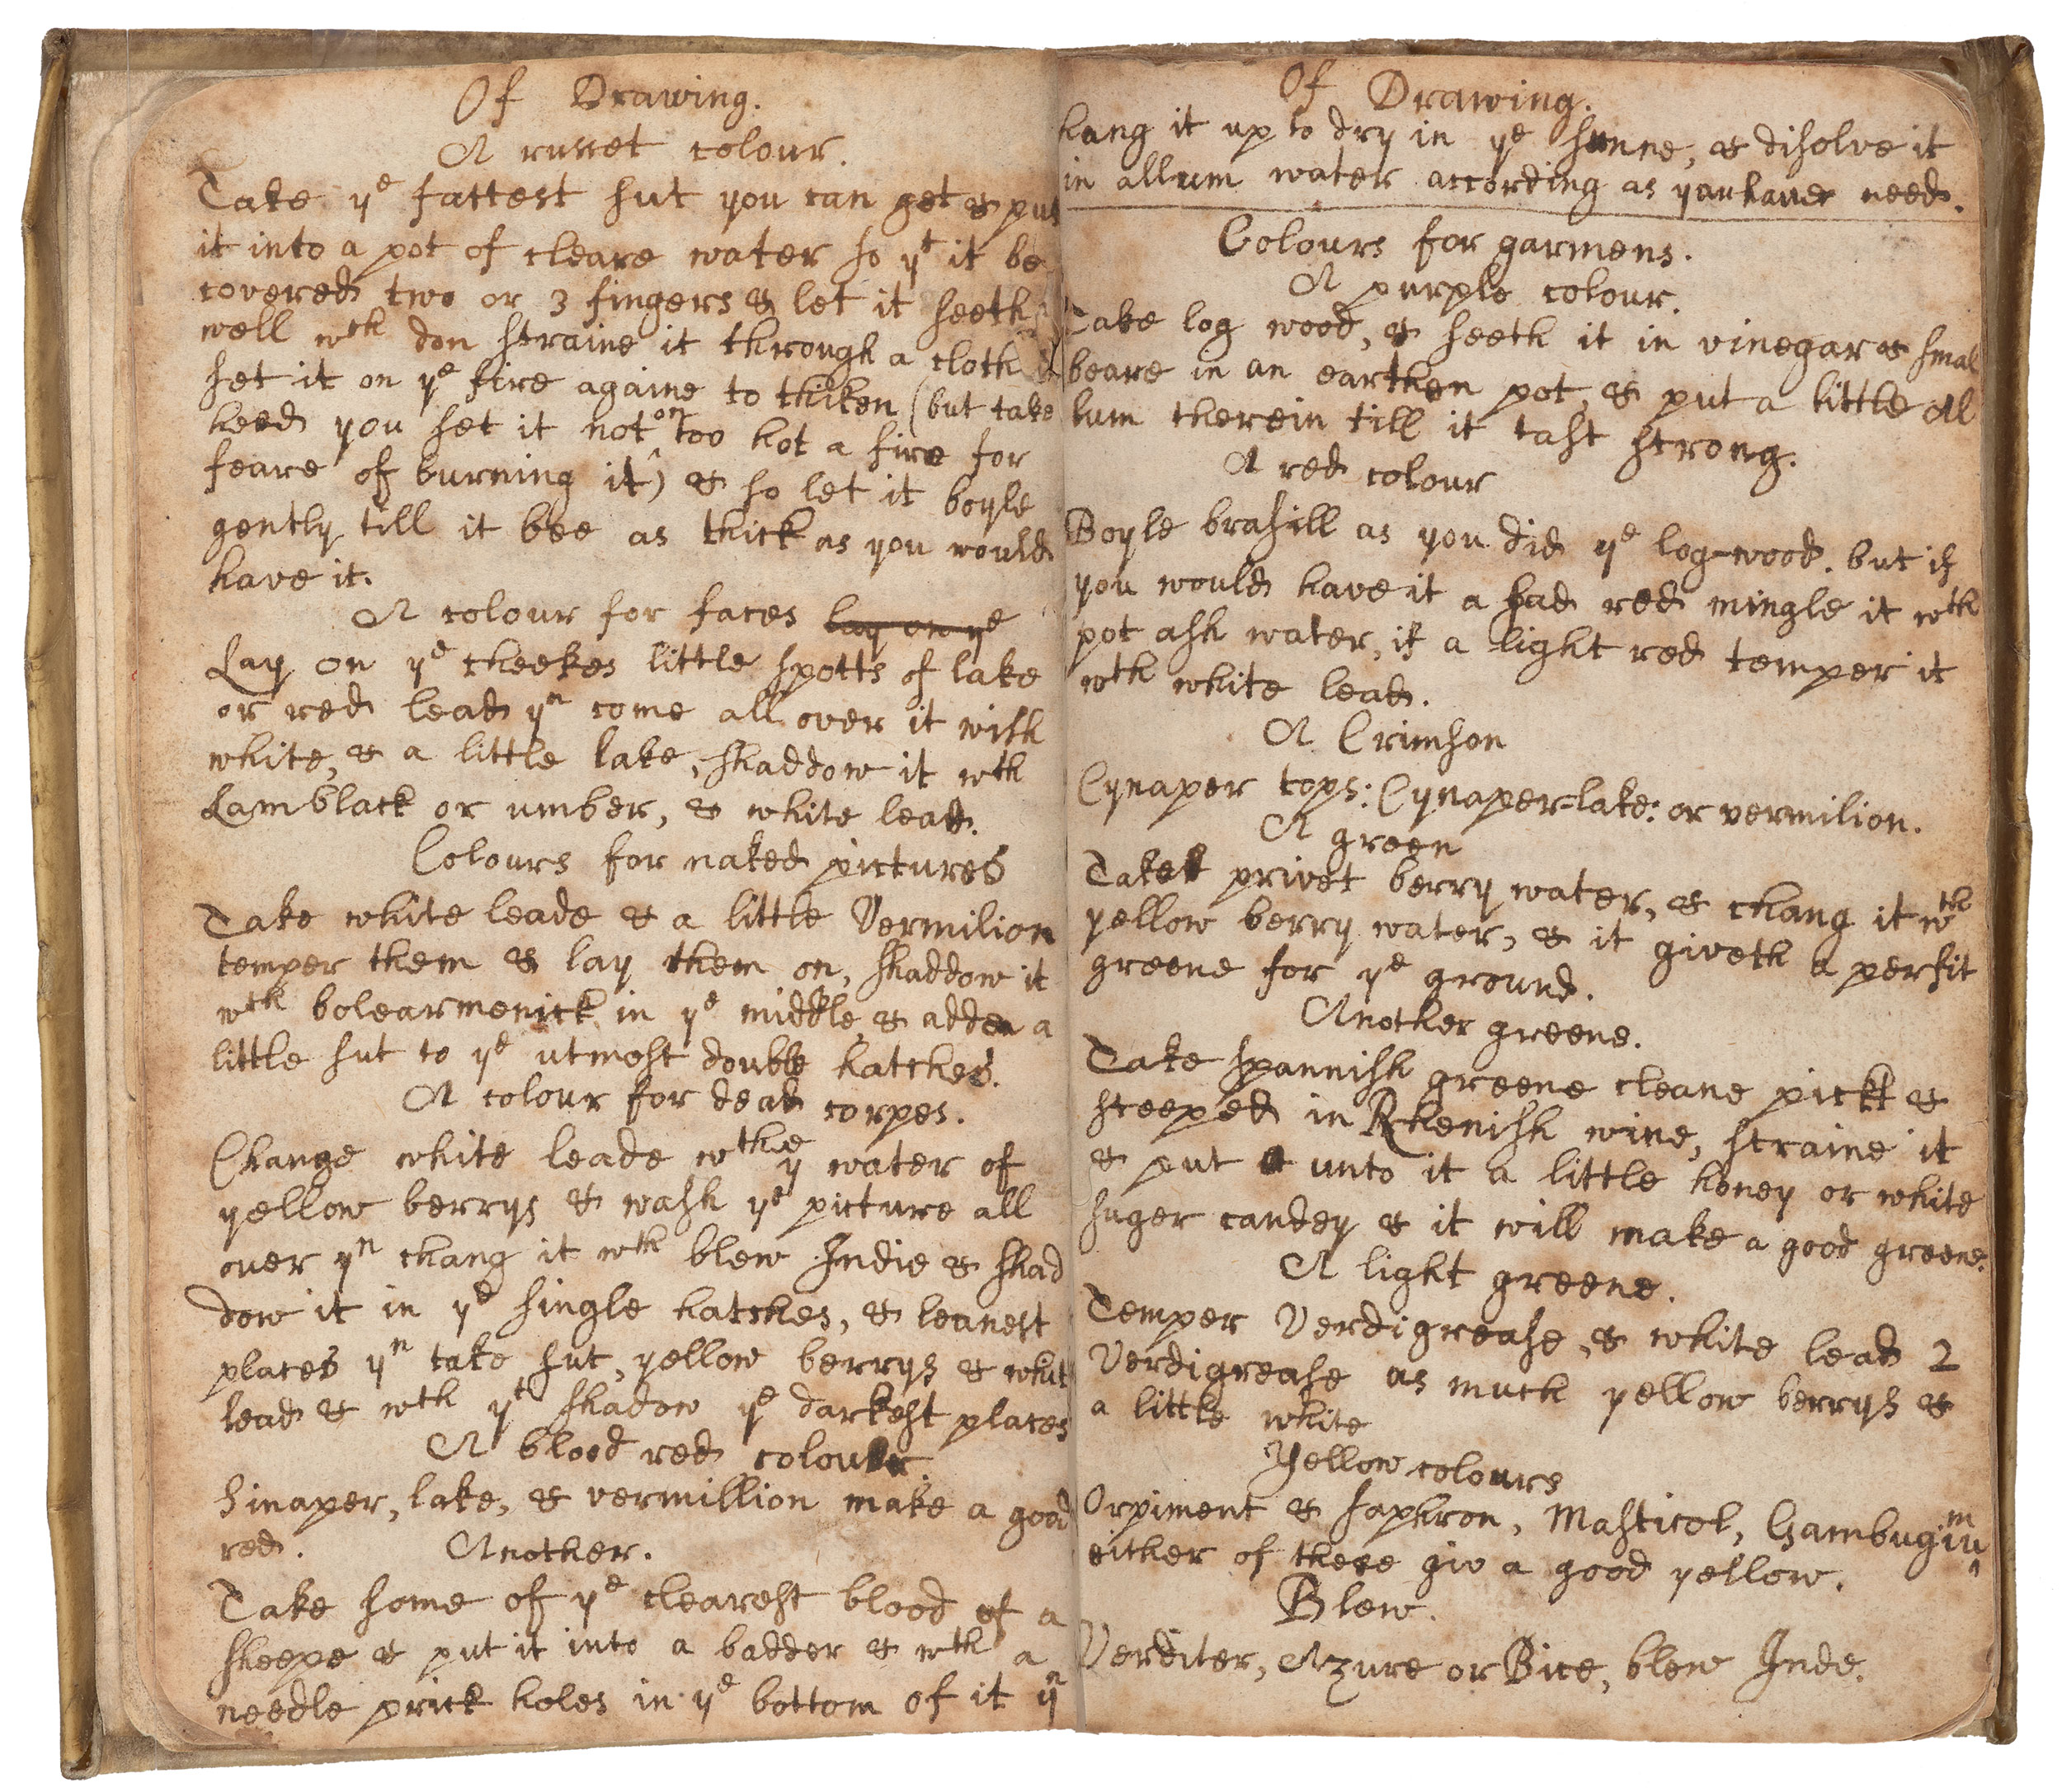 Of Drawing.
A russet colour.
Take yᵉ fattest sut you can get & put
it into a pot of cleare water so yᵗ it be
covered two or 3 fingers & let it seeth
well wᶜʰ don straine it through a cloth &
set it on yᵉ fire againe to thiken (but take
heed you set it not ^on too hot a fire for
feare of burning it) & so let it boyle
gently till it bee as thick as you would
have it.
A colour for faces ~~lay on yᵉ~~
Lay on yᵉ cheekes little spotts of lake
or red lead yⁿ come all over it with
white, & a little lake, shaddow it wᵗʰ
Lamblack or umber, & white lead.
Colours for naked pictures
Take white leade & a little Vermilion
temper them & lay them on, shaddow it
wᵗʰ bolearmenick in yᵉ middle & adde a
little sut to yᵉ utmost double hatches.
A colour for dead corpes.
Change white leade wᵗʰ yᵉ water of
yellow berrys & wash yᵉ picture all
over yⁿ chang it wᵗʰ blew Indie & shad
dow it in yᵉ single hatches, & leanest
places yⁿ take sut, yellow berrys & whit
lead & wᵗʰ yᵗ shadow yᵉ darkest places
A blood red colour
Sinaper, lake, & vermillion make a good
red. Another.
Take some of yᵉ clearest blood of a
sheepe & put it into a badder & wᵗʰ a
needle prick holes in yᵉ bottom of it yⁿ
Of Drawing.
hang it up to dry in yᵉ sunne, & disolve it
in allum water according as you have need.
Colours for garmens.
A purple colour.
Take log wood, & seeth it in vinegar & smal
beare in an earthen pot, & put a little Al
lum therein till it tast strong.
A red colour
Boyle brasill as you did yᵉ log-wood. but if
you would have it a sad red mingle it wᵗʰ
pot ash water, if a light red temper it
wᵗʰ white lead.
A Crimson
Cynaper tops: Cynaper-lake: or vermilion.
A green
Take privet berry water, & chang it wᵗʰ
yellow berry water, & it giveth a perfit
greene for yᵉ ground.
Another greene.
Take spannish greene cleane pickt &
steeped in Rhenish wine, straine it
& put unto it a little honey or white
suger candey & it will make a good greene.
A light greene.
Temper Verdigrease, & white lead 2
Verdigrease as much yellow berrys &
a little white
Yellow colours
Orpiment & saphron, Masticot, Gambugium
either of these giv a good yellow.
Blew.
Verditer, Azure or Bice, blew Inde.